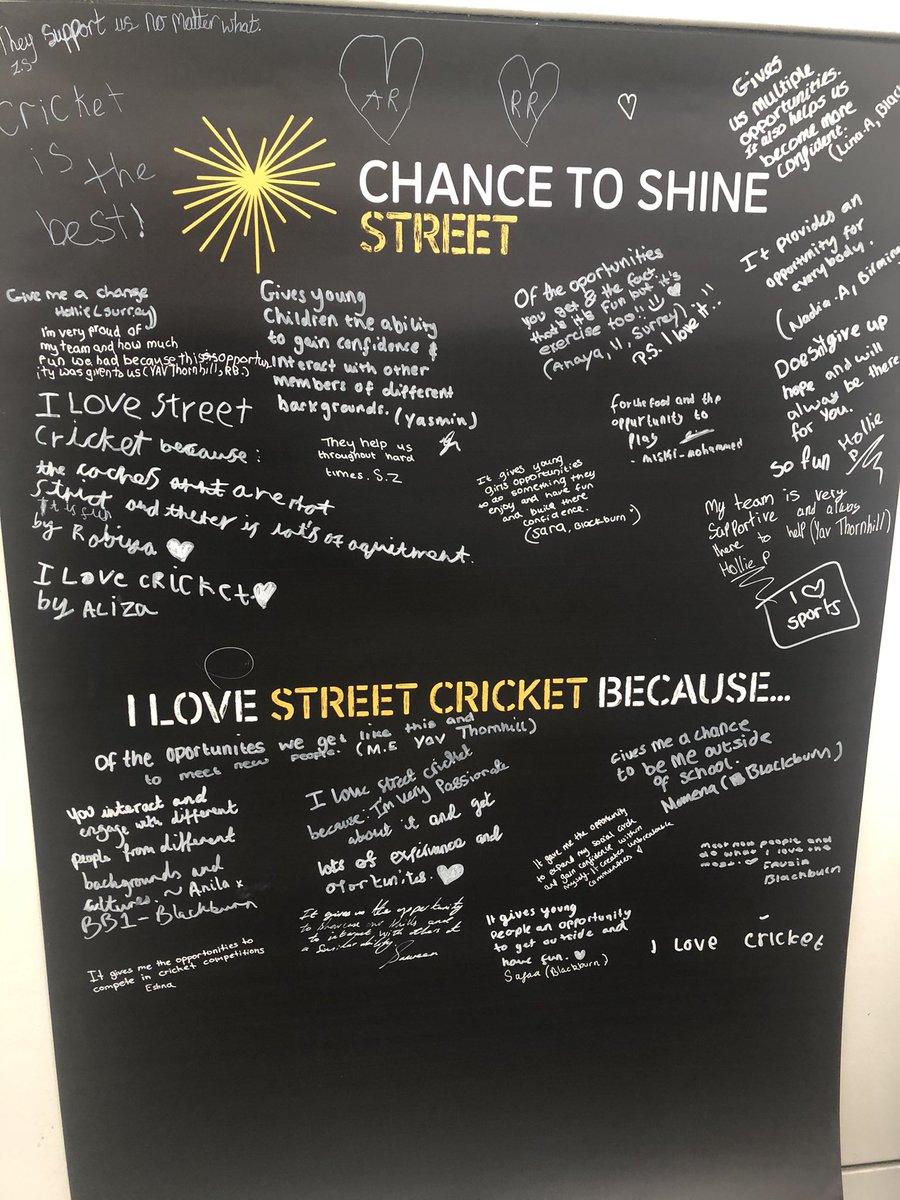 They support us no matter what.
I.S
Cricket
is
the
best!
AR
RR
Gives
us multiple
opportunities.
It also helps us
become more
confident.
(Lina-A, Black
CHANCE TO SHINE
STREET
It provides an
opportunity for
everybody.
(Nadia-A, Birming
Give me a change
Hollie (Surrey)
I'm very proud of
my team and how much
fun we had because this opportun
ity was given to us (YAV Thornhill, RB.)
Gives young
Children the ability
to gain confidence &
interact with other
members of different
backgrounds. (Yasmin)
Of the oportunities
you get & the fact
that's it's fun but it's
exercise too!!
(Anaya, 11, Surrey)
P.S. I love it!!
Doesn't give up
hope and will
alway be there
for you.
so fun Hollie
P
I LOVE Street
Cricket because:
the coaches are not
strict and there is lot's of aquitment.
It is fun
by Robiya
I Love CRICKET
by ALIZA
They help us
throughout hard
times. S.Z
for the food and the
opportunity to
play
- miski-mohammed
It gives young
girls opportunities
to do something they
enjoy and have fun
and build there
confidence.
(Sara, Blackburn :)
My team is very
supportive and alway
there to help (Yav Thornhill)
Hollie P
I
sports
I LOVE STREET CRICKET BECAUSE...
of the oportunites we get like this and
to meet new people. (M.E Yav Thornhill)
You interact and
engage with different
people from different
backgrounds and
cultures. ~ Anila x
BB1 - Blackburn
I love street cricket
because: I'm very Passionate
about it and get
lots of experivance and
oportunits.
Gives me a chance
to be me outside
of school.
Momena (Blackburn)
It gave me the opportunity
to expand my social circle
and gain confidence within
myself. It creates unbreakable
communities
meet new people and
do what I love the
most
Fausia
Blackburn
It gives us the opportunity
to showcase our skills and
to interact with others of
a similar ability.
It gives young
People an opportunity
to get outside and
have fun.
Safaa (Blackburn)
I love cricket
It gives me the opportunities to
compete in cricket competitions
Eshna